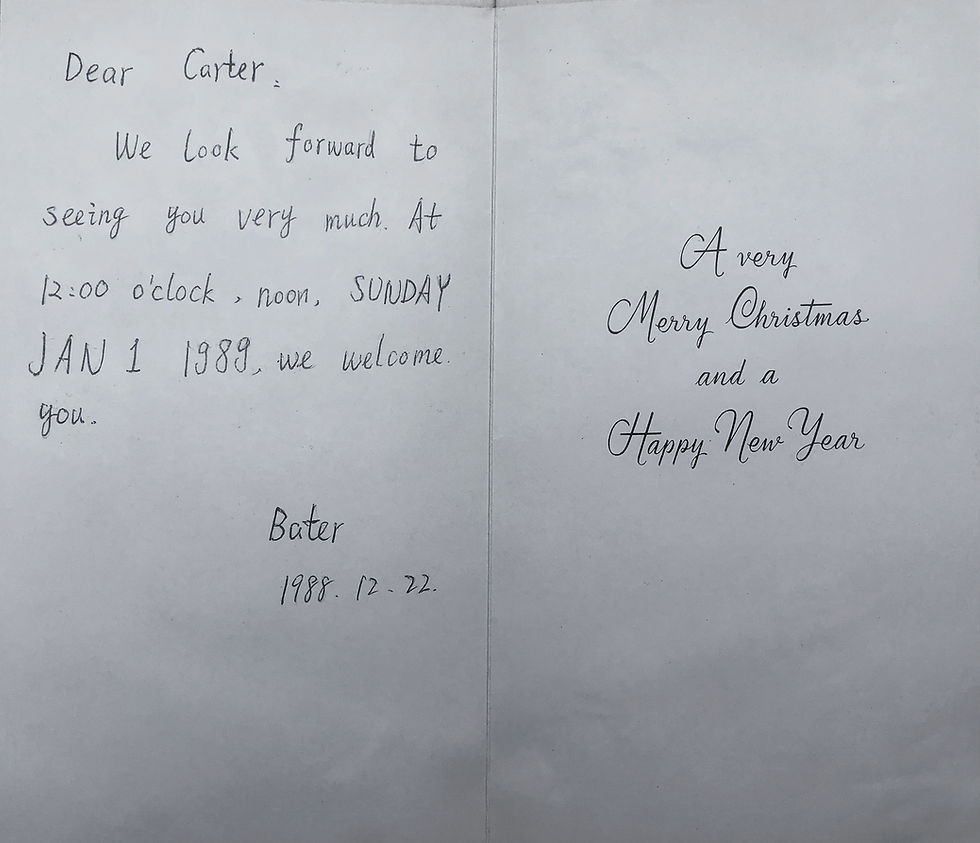 Dear Carter:
We look forward to
seeing you very much. At
12:00 o'clock, noon, SUNDAY
JAN 1 1989, we welcome
you.
Bater
1988. 12. 22.
A very
Merry Christmas
and a
Happy New Year